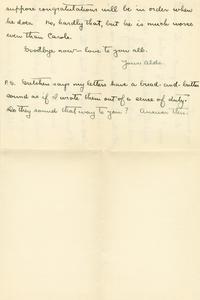 suppose congratulations will be in order when
he does. No, hardly that, but he is much worse
even than Carole.
Goodbye now – love to you all.
Yours Aldo.
P.S. Gretchen says my letters have a bread-and-butter
sound as if I wrote them out of a sense of duty.
Do they sound that way to you? Answer this.